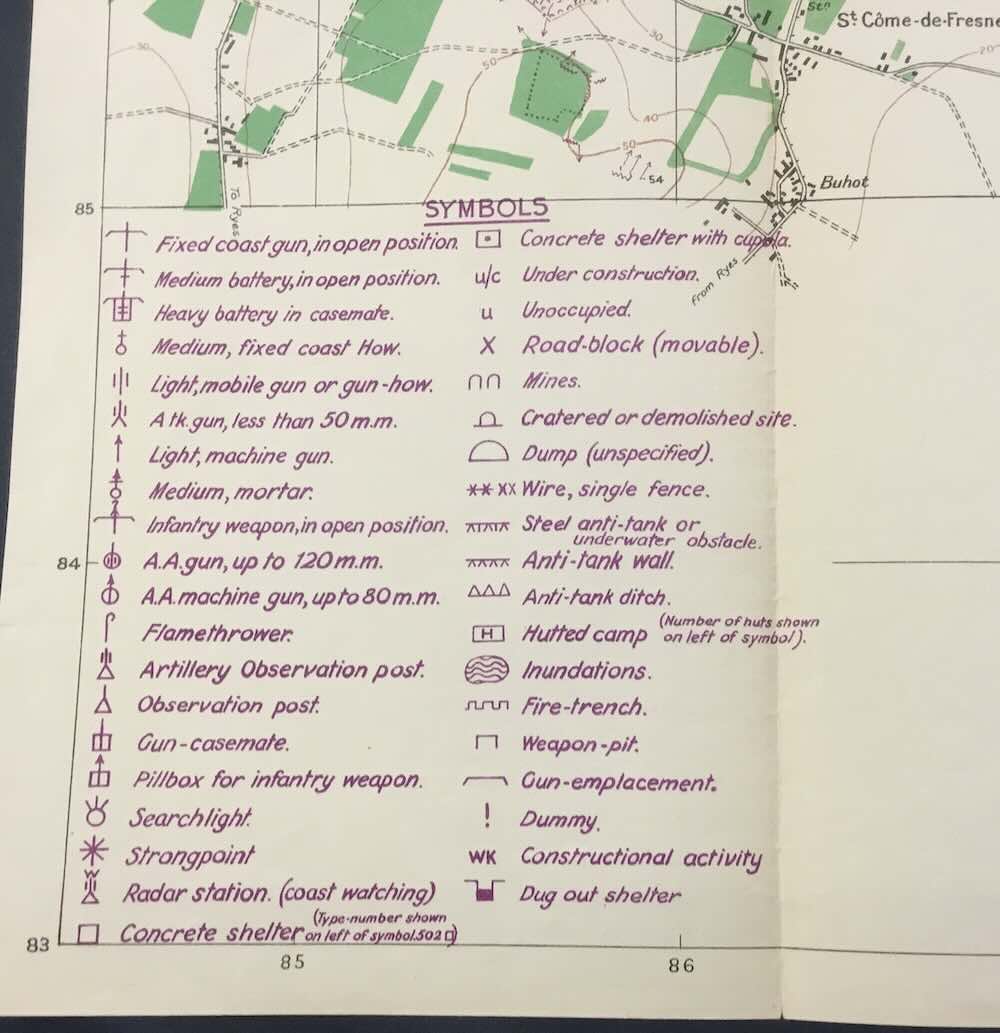 Stn
St Côme-de-Fresne
30
30
20
50
40
50
54
Buhot
To Ryes
From Ryes
85
SYMBOLS
Fixed coast gun, in open position.
Medium battery, in open position.
Heavy battery in casemate.
Medium, fixed coast How.
Light, mobile gun or gun-how.
A tk. gun, less than 50 m.m.
Light, machine gun.
Medium, mortar.
Infantry weapon, in open position.
84
A.A. gun, up to 120 m.m.
A.A. machine gun, up to 80 m.m.
Flamethrower.
Artillery Observation post.
Observation post.
Gun-casemate.
Pillbox for infantry weapon.
Searchlight.
Strongpoint
Radar station. (coast watching)
Concrete shelter (Type-number shown
on left of symbol. 502 □)
Concrete shelter with cupola.
u/c Under construction.
u Unoccupied.
X Road-block (movable).
Mines.
Cratered or demolished site.
Dump (unspecified).
XX Wire, single fence.
Steel anti-tank or
underwater obstacle.
Anti-tank wall.
Anti-tank ditch.
H Hutted camp (Number of huts shown
on left of symbol).
Inundations.
Fire-trench.
Weapon-pit.
Gun-emplacement.
! Dummy.
WK Constructional activity
Dug out shelter
83
85
86